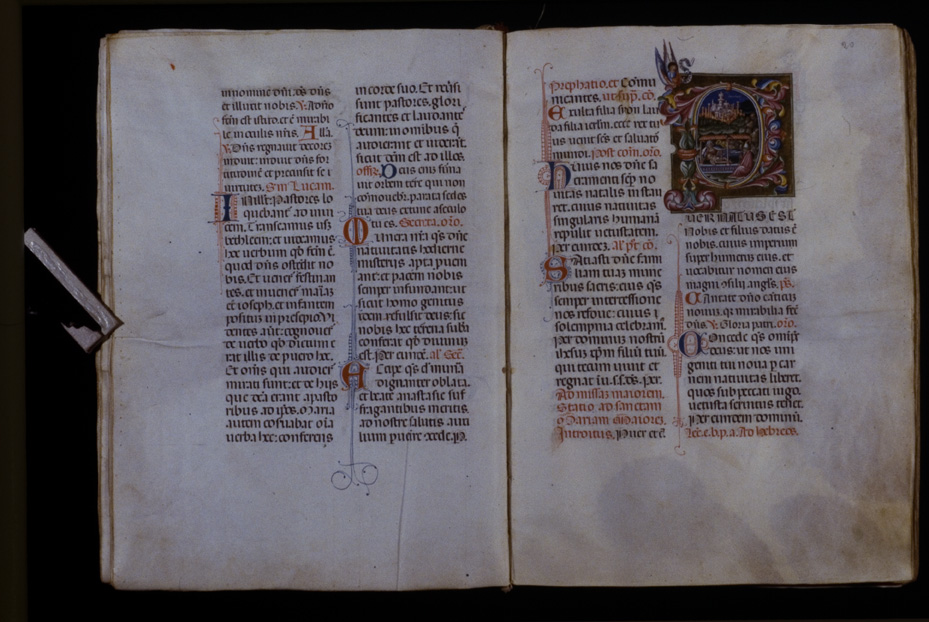 in nomine dñi. ds dñs
et illuxit nobis. ℣. a dño
fcm est istud: et ē mirabi
le in oculis nr̄is. Alla.
℣. Dñs regnauit decorē
induit: induit dñs for
titudinē et precinxit se
uirtutez. Sm̄ Lucam.
In illo t̄. Pastores lo
quebant᷑ ad inui
cem. Transeamus usqꝫ
bethleem: et uideamus
hoc uerbum qd̄ fcm̄ ē.
quod dñs ostendit no
bis. Et uener̄t festinan
tes. et inuener̄t mariaz
et ioseph. et infantem
positum in presepio. Vi
dentes aūt: cognouer̄t
de uerbo qd̄ dictum e
rat illis de puero hoc.
Et oēs qui audier̄t
mirati sunt: et de hijs
que dicta erant a pasto
ribus ad ip̄os. Maria
autem cōseruabat oīa
uerba hec: conferens
in corde suo. Et reu̅si
sunt pastores. glori
ficantes et laudantes
deum: in omibus q̄
audierant et uiderāt.
sicut dcm̄ est ad illos.
offꝫ. Deus eni firma
uit orbem terre qui non
cōmouebit᷑: parata sedes
tua deus ex tunc a seculo
tu es. Secreta. oro.
Munera nr̄a qs̄ dñe
natiuitatis hodierne
misterijs apta proueni
ant: et pacem nobis
semper infundant: ut
sicut homo genitus
idem refulsit deus: sic
nobis hec terrena subā
conferat qd̄ diuinum
est. Per eundē. al. Sec.
Accipe qs̄ dñe munera
dignanter oblata.
et beate anastasie suf
fragantibus meritis
ad nostre salutis auxi
lium puenire concede. P.
Prephatio. et Comu
nicantes. ut sup̄. cō.
Exulta filia syon lau
da filia ierlm̄. ecce rex tu
us uenit scs̄ et saluator
mundi. Post com̄. oro.
Huius nos dñe sa
cramenti semp̄ no
uitas natalis instau
ret. cuius natiuitas
singularis humanā
repulit uetustatem.
Per eundez. al. pt̄. cō.
Satiasti dñe fami
liam tuaz mune
ribus sacris: eius qs̄
semper interuentione
nos refoue: cuius
solempnia celebram̄.
Per dominum nostrū
ihesuꝫ xp̄m filiū tuū.
qui tecum uiuit et
regnat in. s. s. ds. per.
Ad missaz maiorem.
Statio ad sanctam
Mariam Maiorez.
Introitus. Puer
NATUS EST
nobis et filius datus ē
nobis. cuius imperium
super humerum eius. et
uocabitur nomen eius
magni cōsilij angls̄. ps̄.
Cantate dño cāticū
nouuꝫ. qr̄ mirabilia fec̄
dñs. ℣. Gloria patri. oro.
Concede qs̄ omip̄s
deus: ut nos uni
geniti tui noua p car
nem natiuitas liberet.
quos sub peccati iugo.
uetusta seruitus tenet.
Per eumdem dominū.
lec̄. e. b. p. a. Ad hebreos.